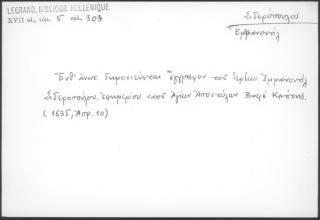 LEGRAND, BIBLIOGR. HELLENIQUE
XVII αἰ, τόμ. 5 σελ. 303
Σιδερόπουλος
Ἐμμανουήλ
Ἔνθ' ἄνω δημοσιεύεται ἔγγραφον τοῦ ἱερέως Ἐμμανουήλ
Σιδεροπούλου, ἐφημερίου ναοῦ Ἁγίων Ἀποστόλων Κρήτης.
(1635, Ἀπρ. 10).